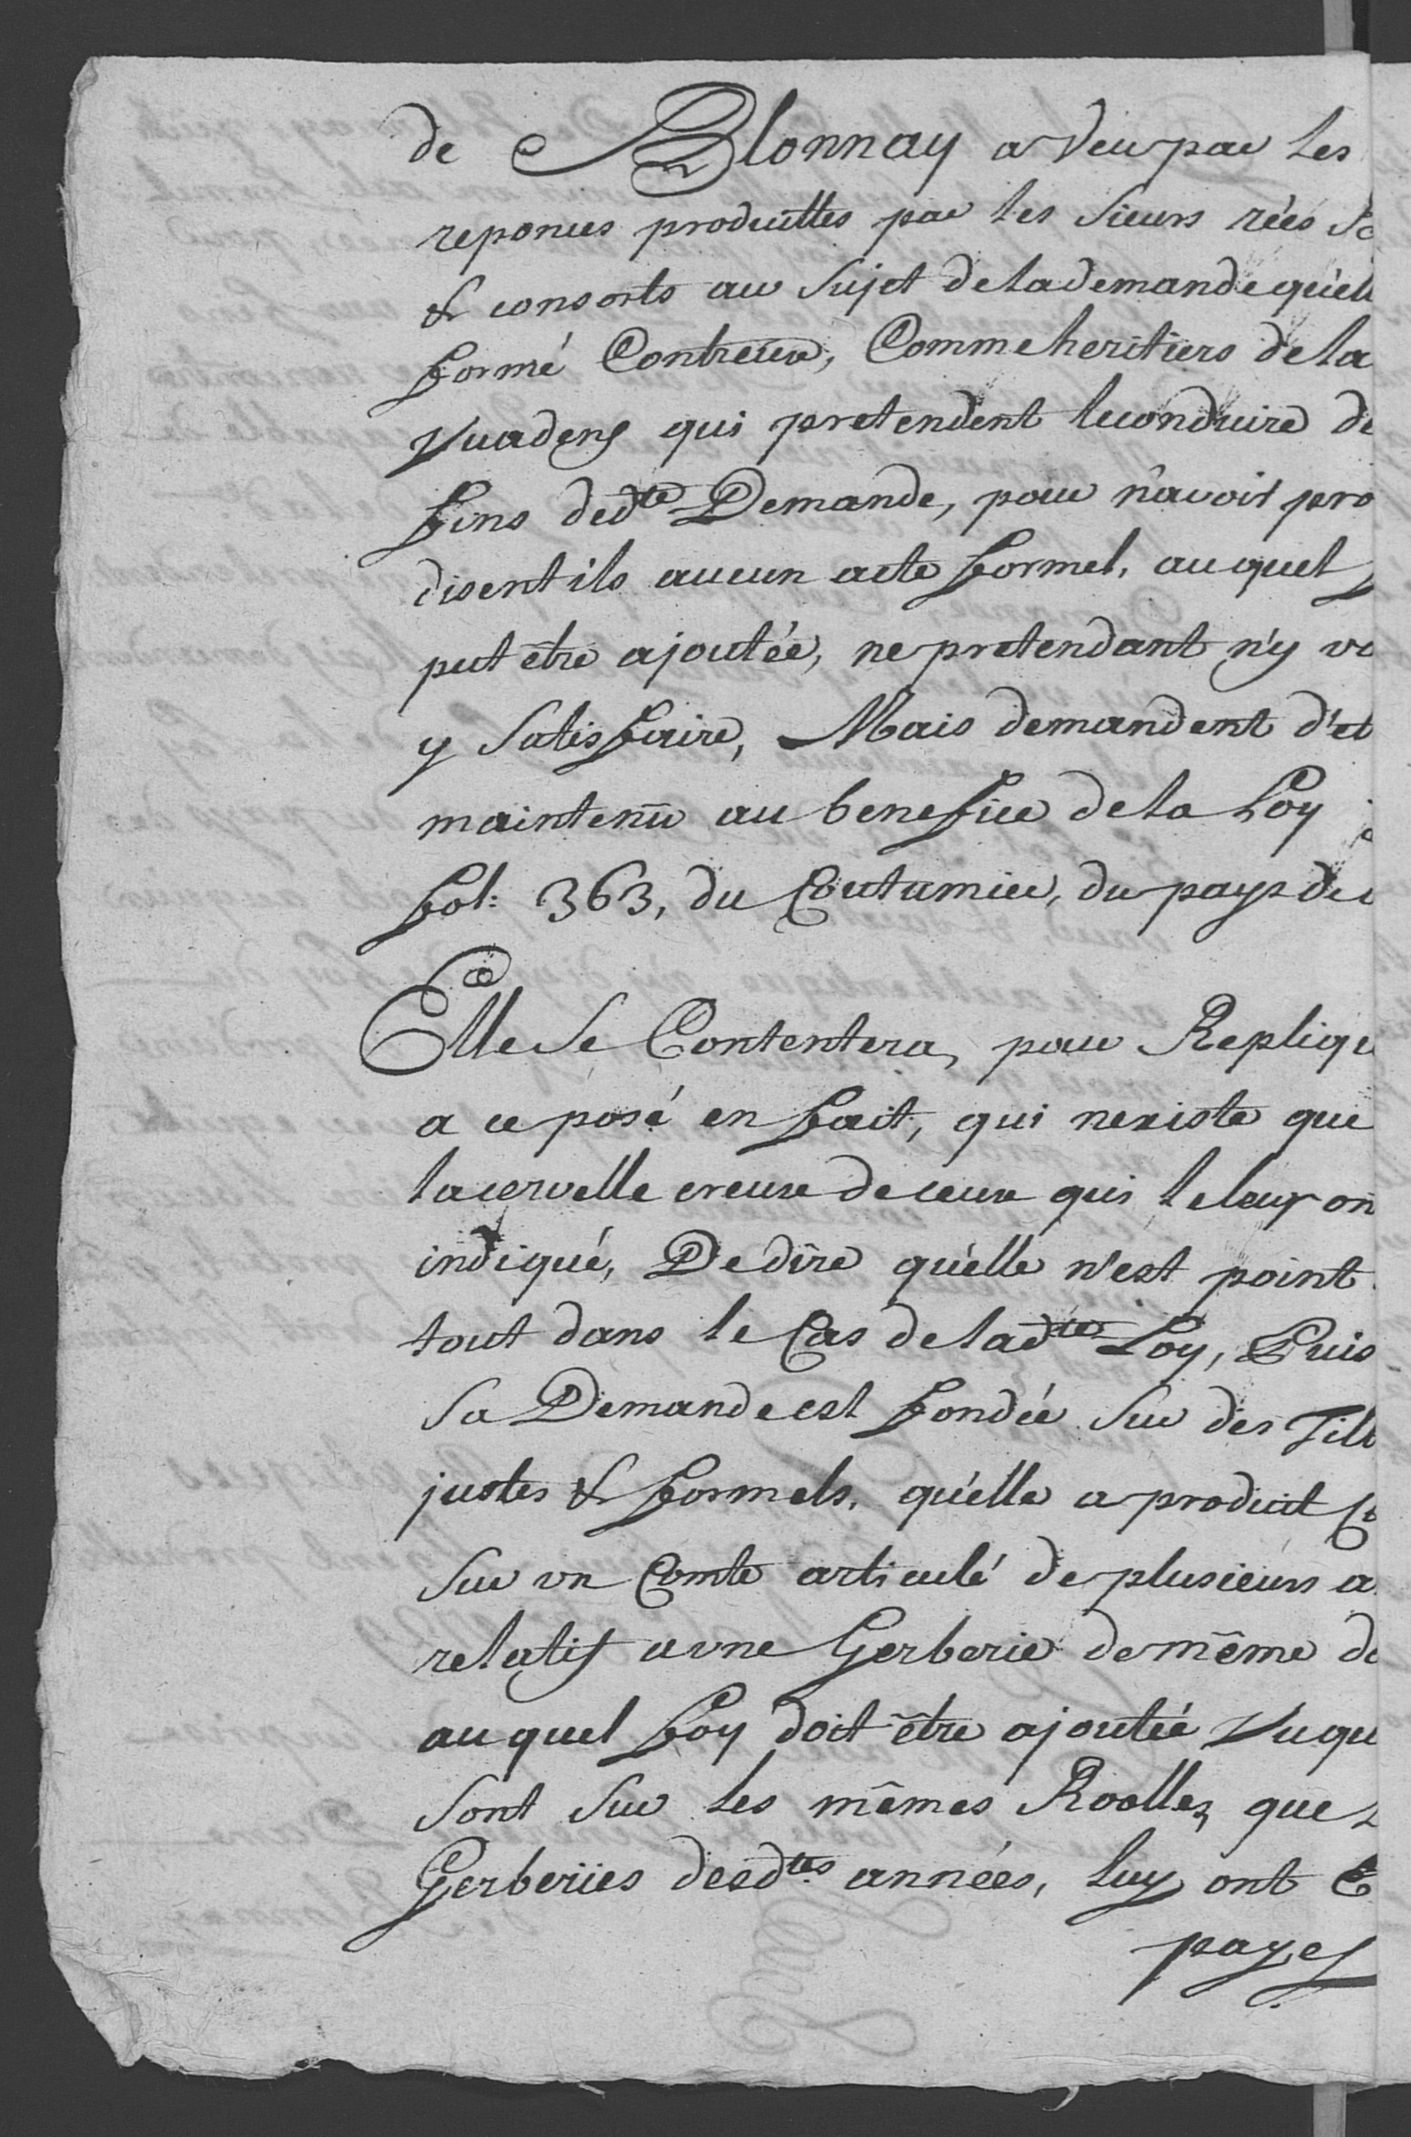 de Blonnay a Veu par les
reponces produittes par les Sieurs rées
& consorts au Sujet de la demande qu'ell
formé Contreux, Comme heritiers de la
Vuadens qui pretendent leconduire de
fins de d.te Demande, pour n'avoir pro
disent ils aucun acte formel, auquel
put être ajoutée, ne pretendant n'y vo
y Satisfaire, Mais demandent d'et
maintenu au benefice de la Loy
fol: 363, du Coutumier, du pays de
Elle Se Contentera, pour Repliqu
a ce posé en fait, qui nexiste que
la cervelle creuse de ceux qui le leur on
indiqué, De dire qu'elle n'est point
tout dans le Cas de lad.te Loy, Puis
Sa Demande est fondée Sur des Tit
justes & formels, qu'elle a produit
Sur un Comte articulé de plusieurs a
relatif a une Gerberie de même d
auquel foy doit être ajoutée Vu qu
Sont Sur les mêmes Roolles, que
Gerberiies desd.tes années, luy ont
payes